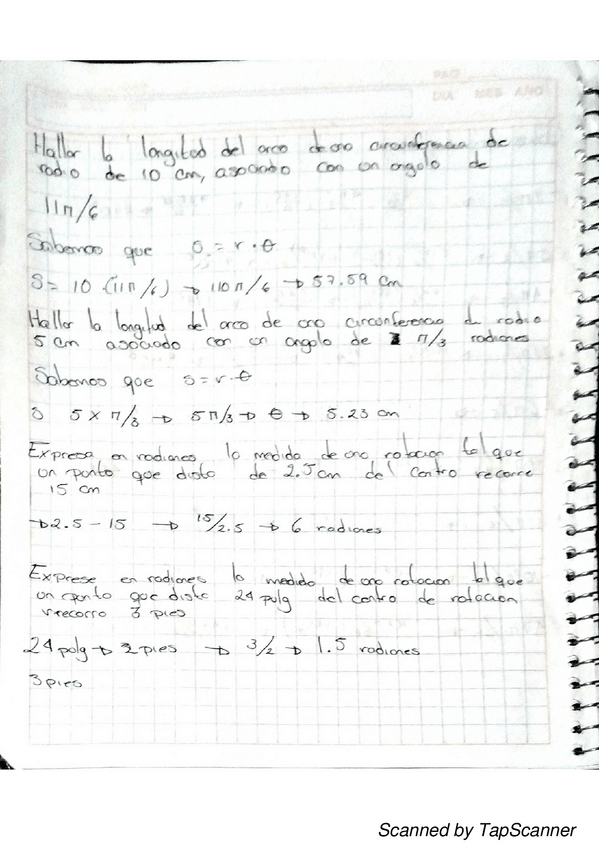 PAG
DIA MES AÑO
Hallar la longitud del arco de una circunferencia de
radio de 10 cm, asociado con un angulo de
11π/6
Sabemos que S = r · θ
S = 10 (11π/6) → 110π/6 → 57.59 cm
Hallar la longitud del arco de una circunferencia de radio
5 cm asociado con un angulo de π/3 radiones
Sabemos que s = r · θ
S 5 x π/3 → 5π/3 → θ → 5.23 cm
Expresa en radiones la medida de una rotacion tal que
un punto que dista de 2.5 cm del centro recorre
15 cm
→ 2.5 - 15 → 15/2.5 → 6 radiones
Exprese en radiones la medida de una rotacion tal que
un punto que dista 24 pulg del centro de rotacion
recorra 3 pies
24 polg → 2 pies → 3/2 → 1.5 radiones
3 pies
Scanned by TapScanner